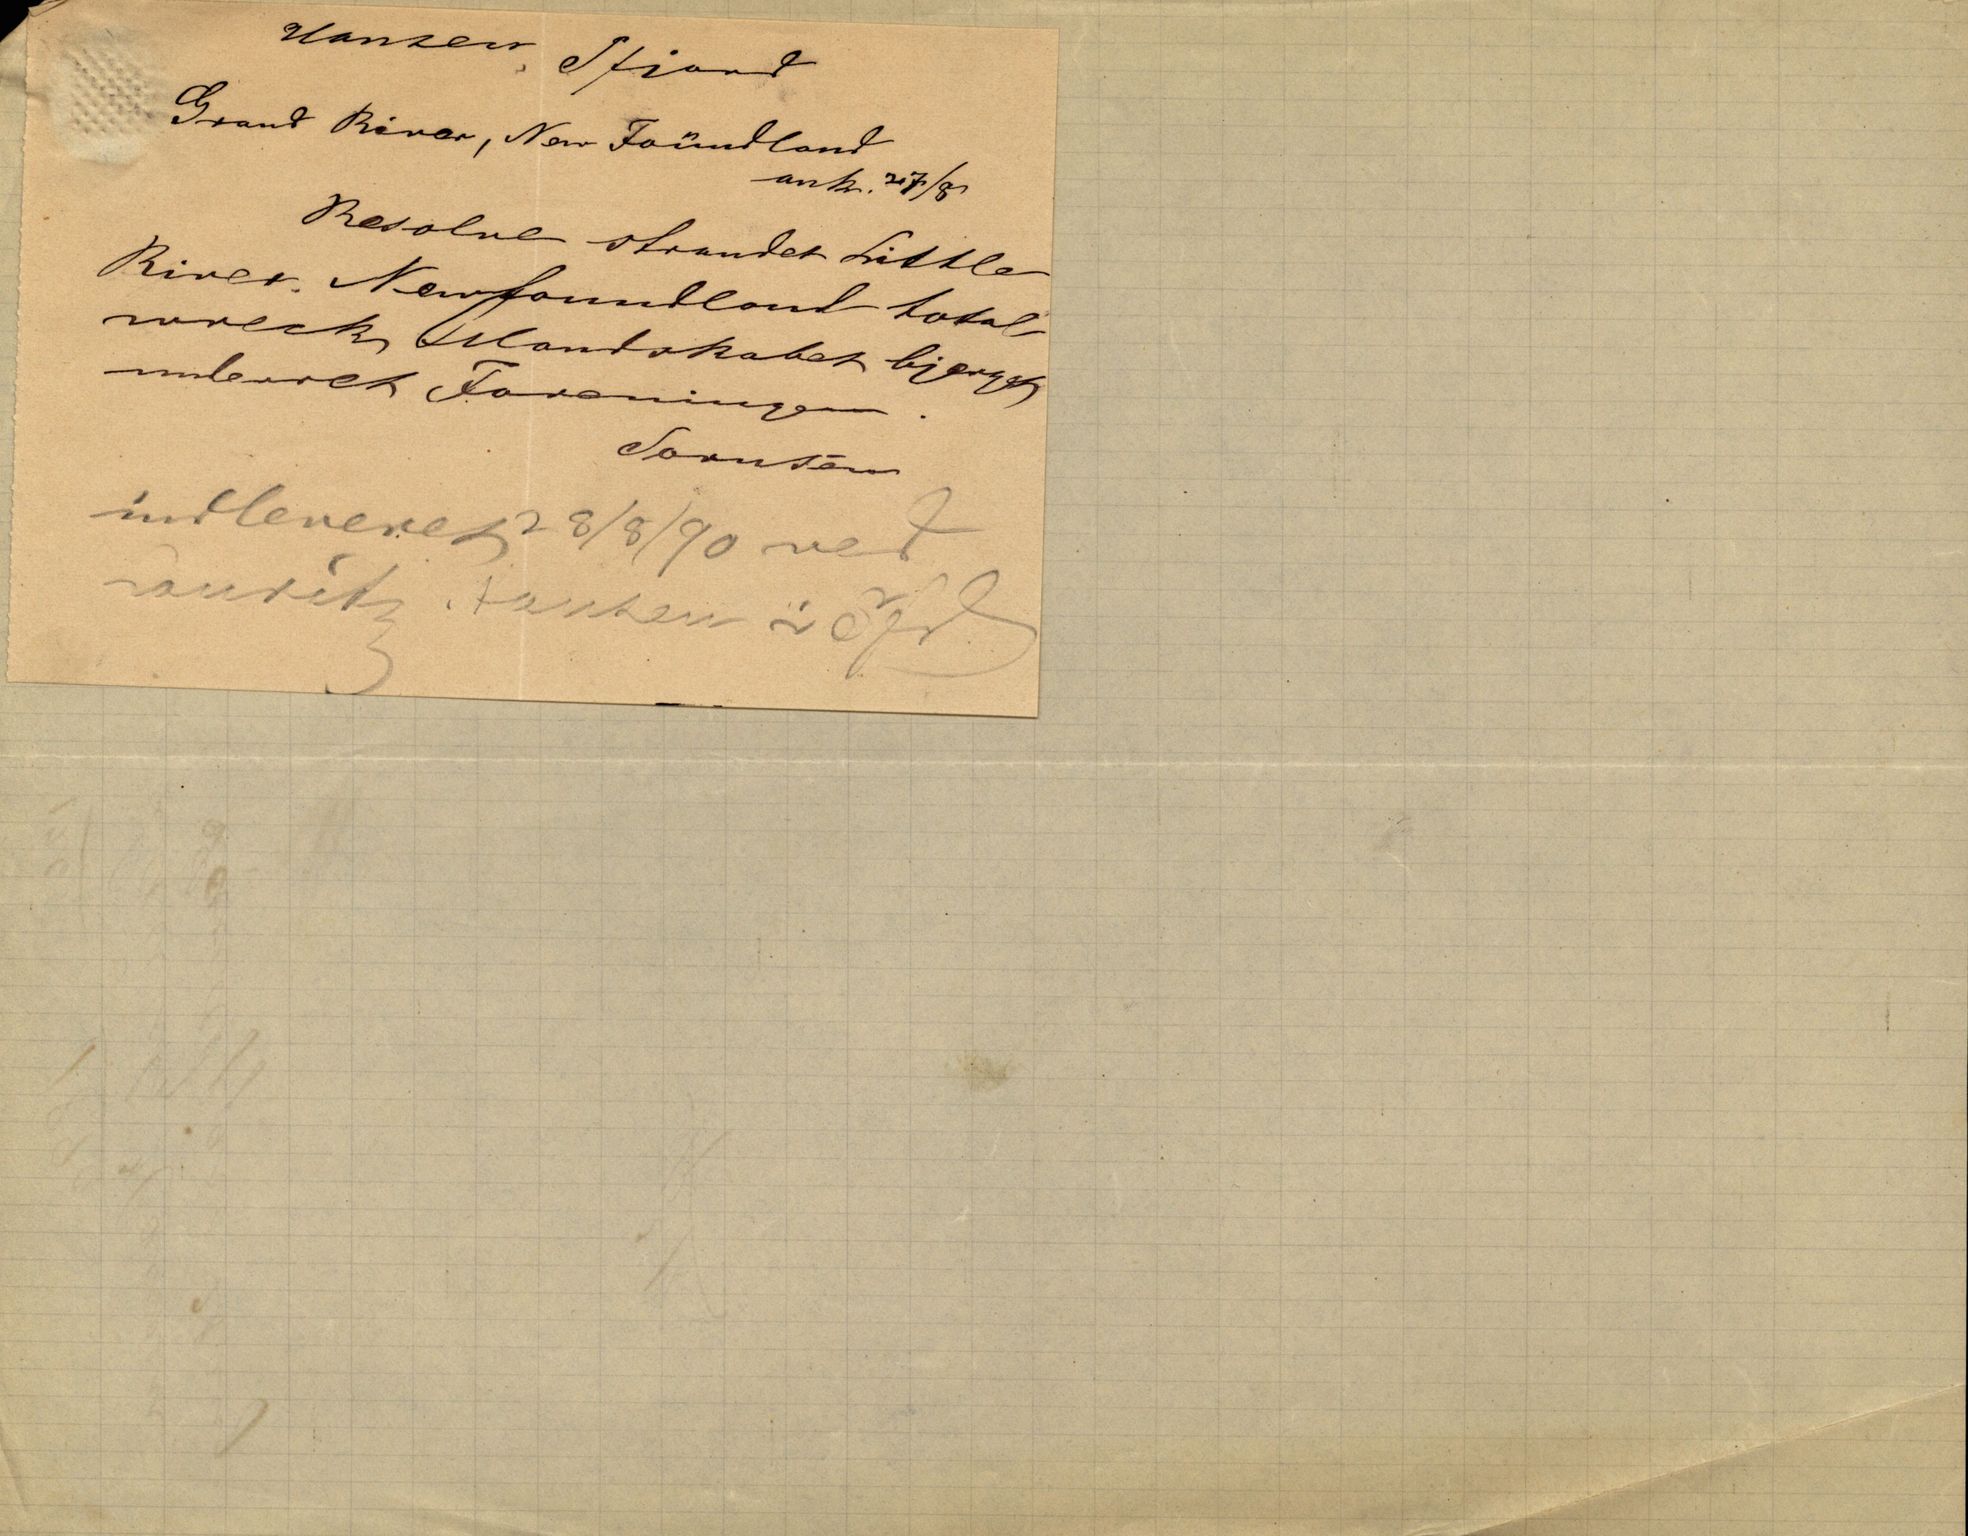 Hansen, Sfjord
Grand River, New Foundland
ank. 27/8
Resolve strandet Little
River. Newfoundland total
wreck, Mandskabet bjerget
underret Foreningen.
Sorensen
indleveret 28/8/90 ved
Lauritz Hansen i Sfjd